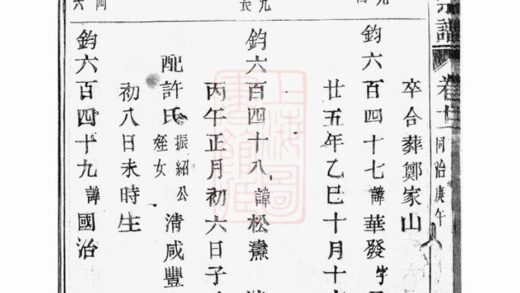 宗譜
卷廿
同治庚午
卒合葬鄭家山
鈞六百四十七諱華發字
廿五年乙巳十月十
鈞六百四十八諱松燾
丙午正月初六日子
配許氏振紹公姪女清咸豐
初八日未時生
鈞六百四十九諱國治
上海圖書館